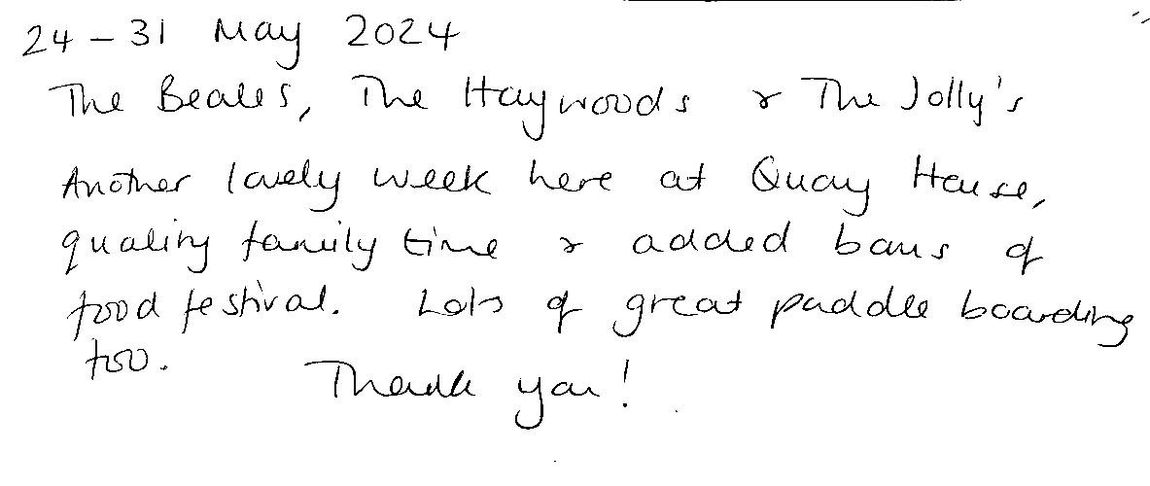 24 – 31 May 2024
The Beales, The Haywoods & The Jolly's
Another lovely week here at Quay House,
quality family time & added bonus of
food festival. Lots of great paddle boarding
too.
Thank you!